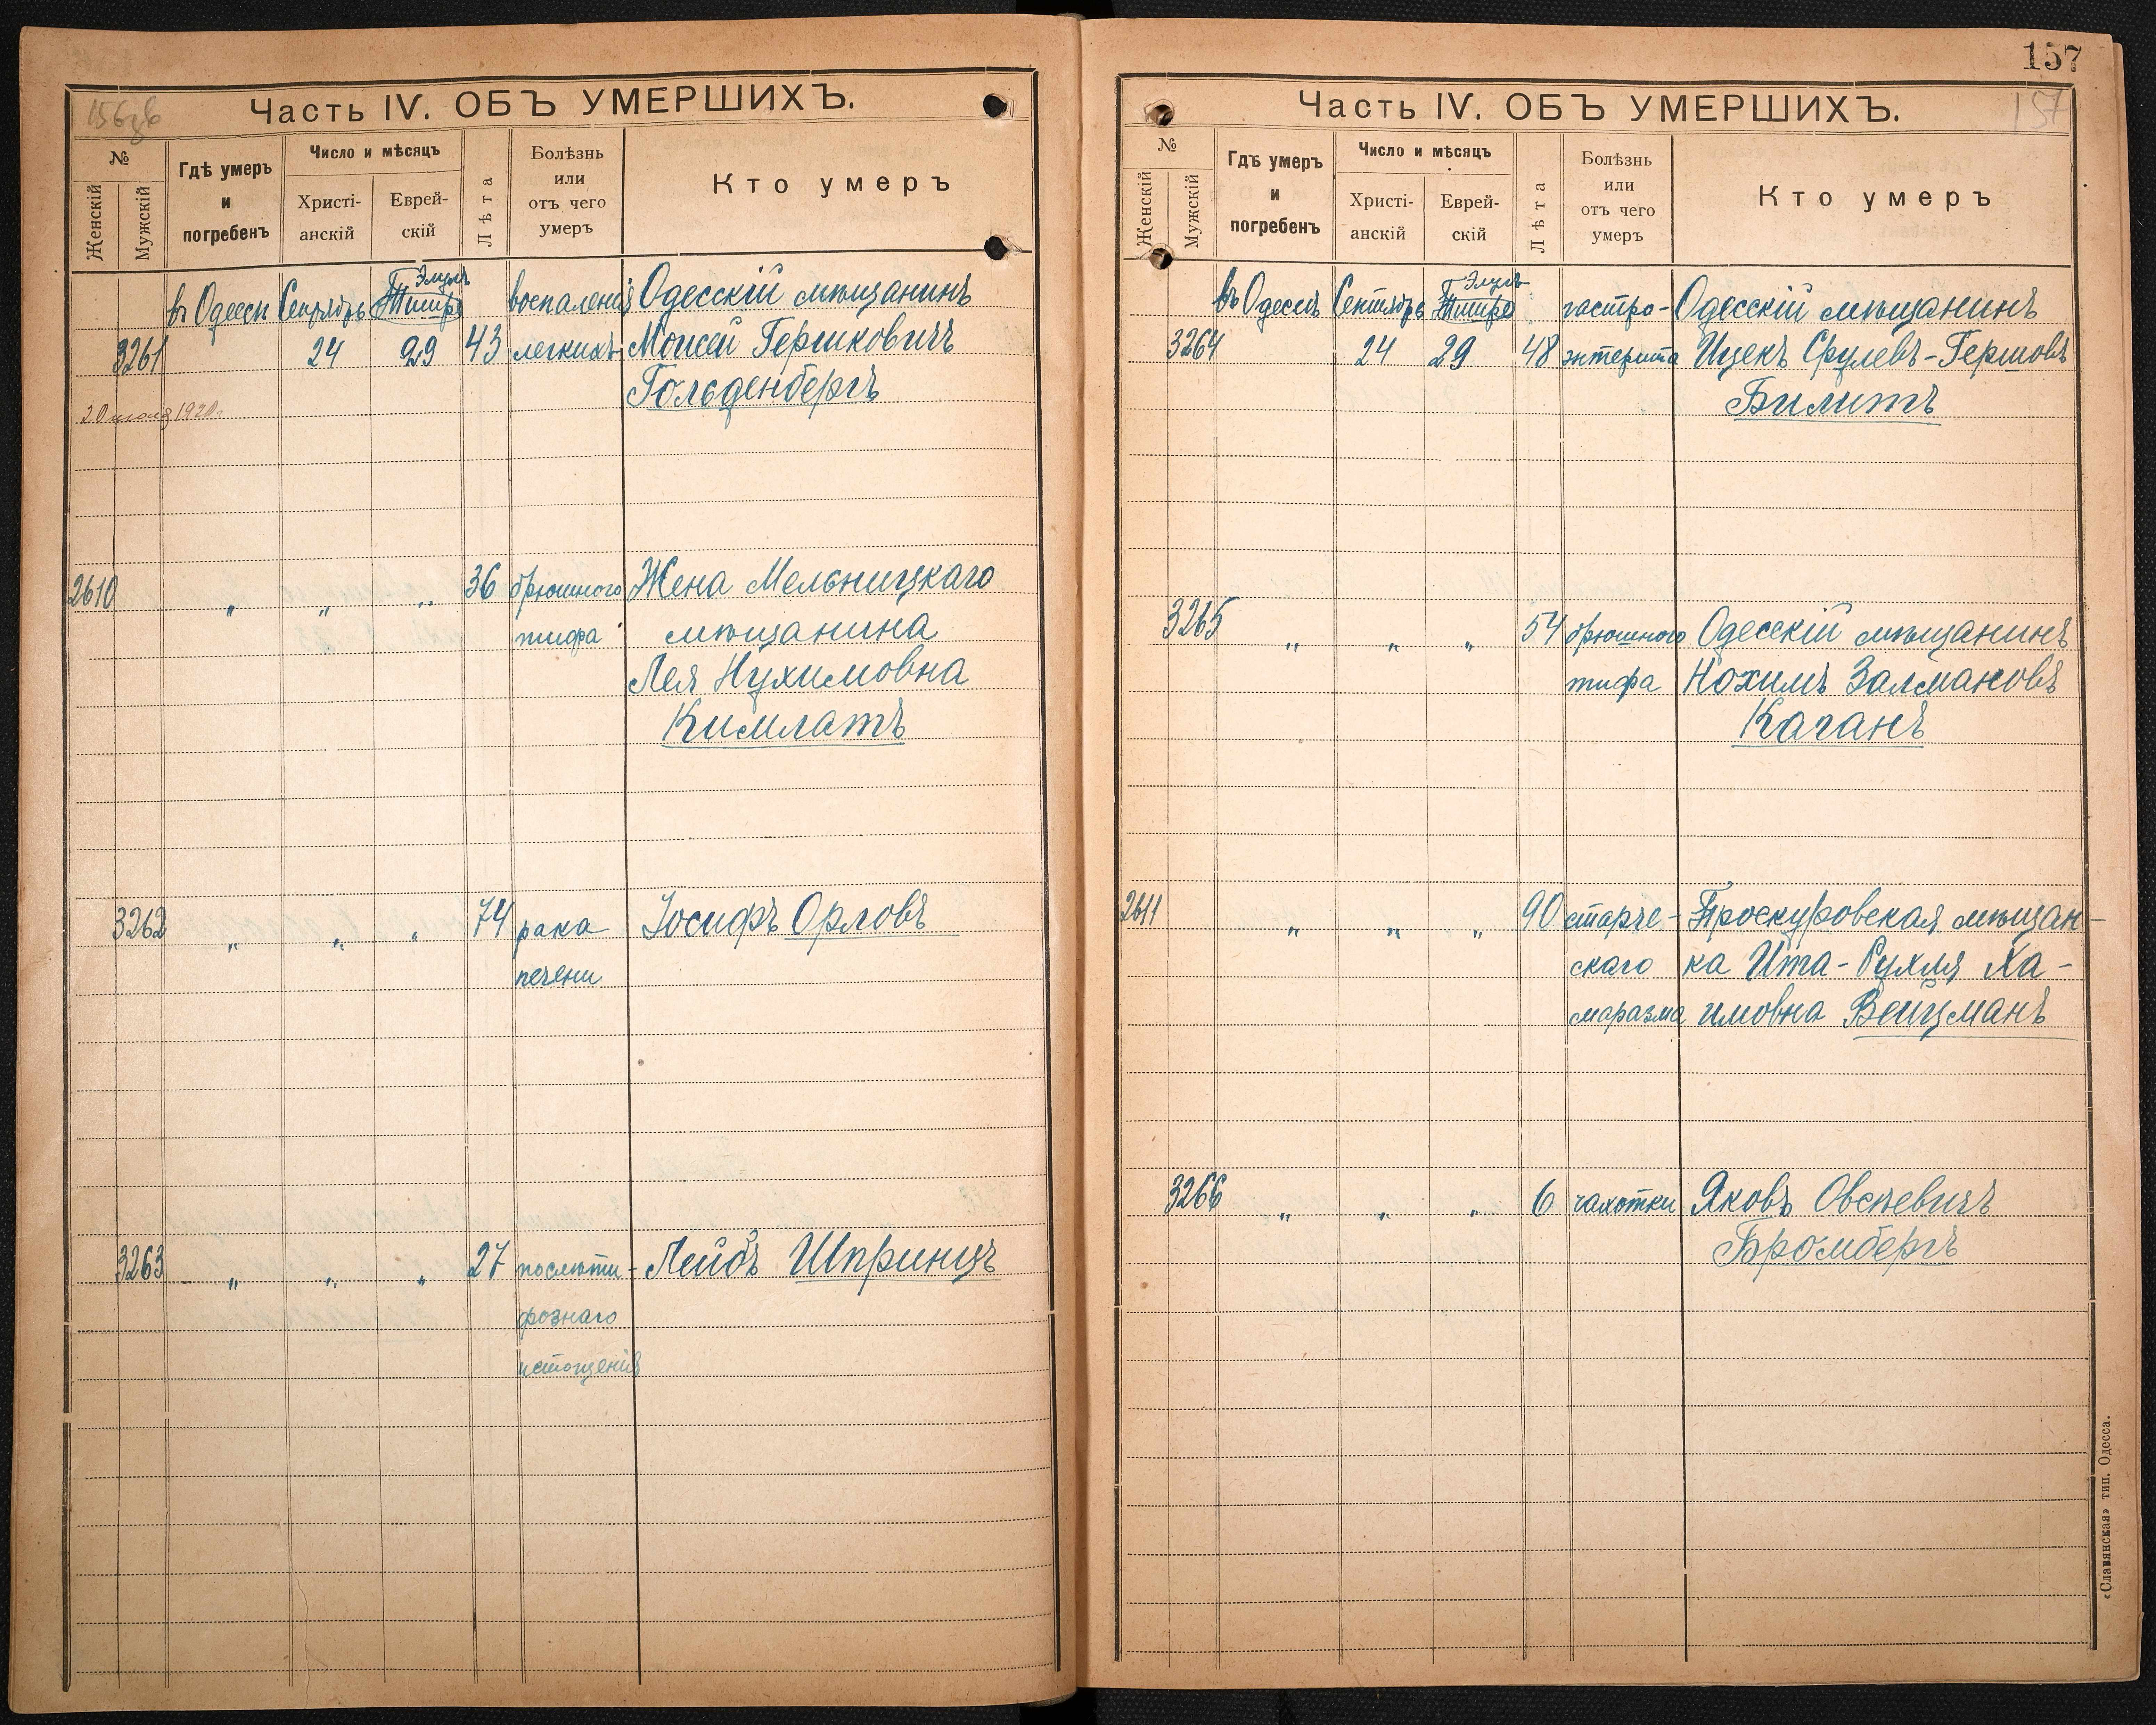 156зв
Часть IV. ОБЪ УМЕРШИХЪ.
№
Женскій
Мужскій
Гдѣ умеръ
и
погребенъ
Число и мѣсяцъ
Христі-
анскій
Еврей-
скій
Лѣта
Болѣзнь
или
отъ чего
умеръ
Кто умеръ
Элуль
въ Одессѣ Сентябрь Тишре воспаленія Одесскій мѣщанинъ
3261 24 29 43 легкихъ Моисей Гершковичъ
Гольденбергъ
20 1920г.
2610 " " " 36 брюшного Жена Мельницкаго
тифа мѣщанина
Лея Нухимовна
Кимлатъ
3262 " " " 74 рака Іосифъ Орловъ
печени
3263 " " " 27 послѣти- Лейбъ Шпринцъ
фознаго
истощенія
157
157
Часть IV. ОБЪ УМЕРШИХЪ.
№
Женскій
Мужскій
Гдѣ умеръ
и
погребенъ
Число и мѣсяцъ
Христі-
анскій
Еврей-
скій
Лѣта
Болѣзнь
или
отъ чего
умеръ
Кто умеръ
Элуль
въ Одессѣ Сентябрь Тишре гастро- Одесскій мѣщанинъ
3264 24 29 48 энтерита Ицекъ Срулевъ-Гершовъ
Билитъ
3265 " " " 54 брюшного Одесскій мѣщанинъ
тифа Нохимъ Залмановъ
Каганъ
2611 " " " 90 старче- Проскуровская мѣщан-
скаго ка Ита-Рухля Ха-
маразма имовна Вейцманъ
3266 " " " 6 чахотки Яковъ Овсѣевичъ
Бромбергъ
«Славянская» тип. Одесса.